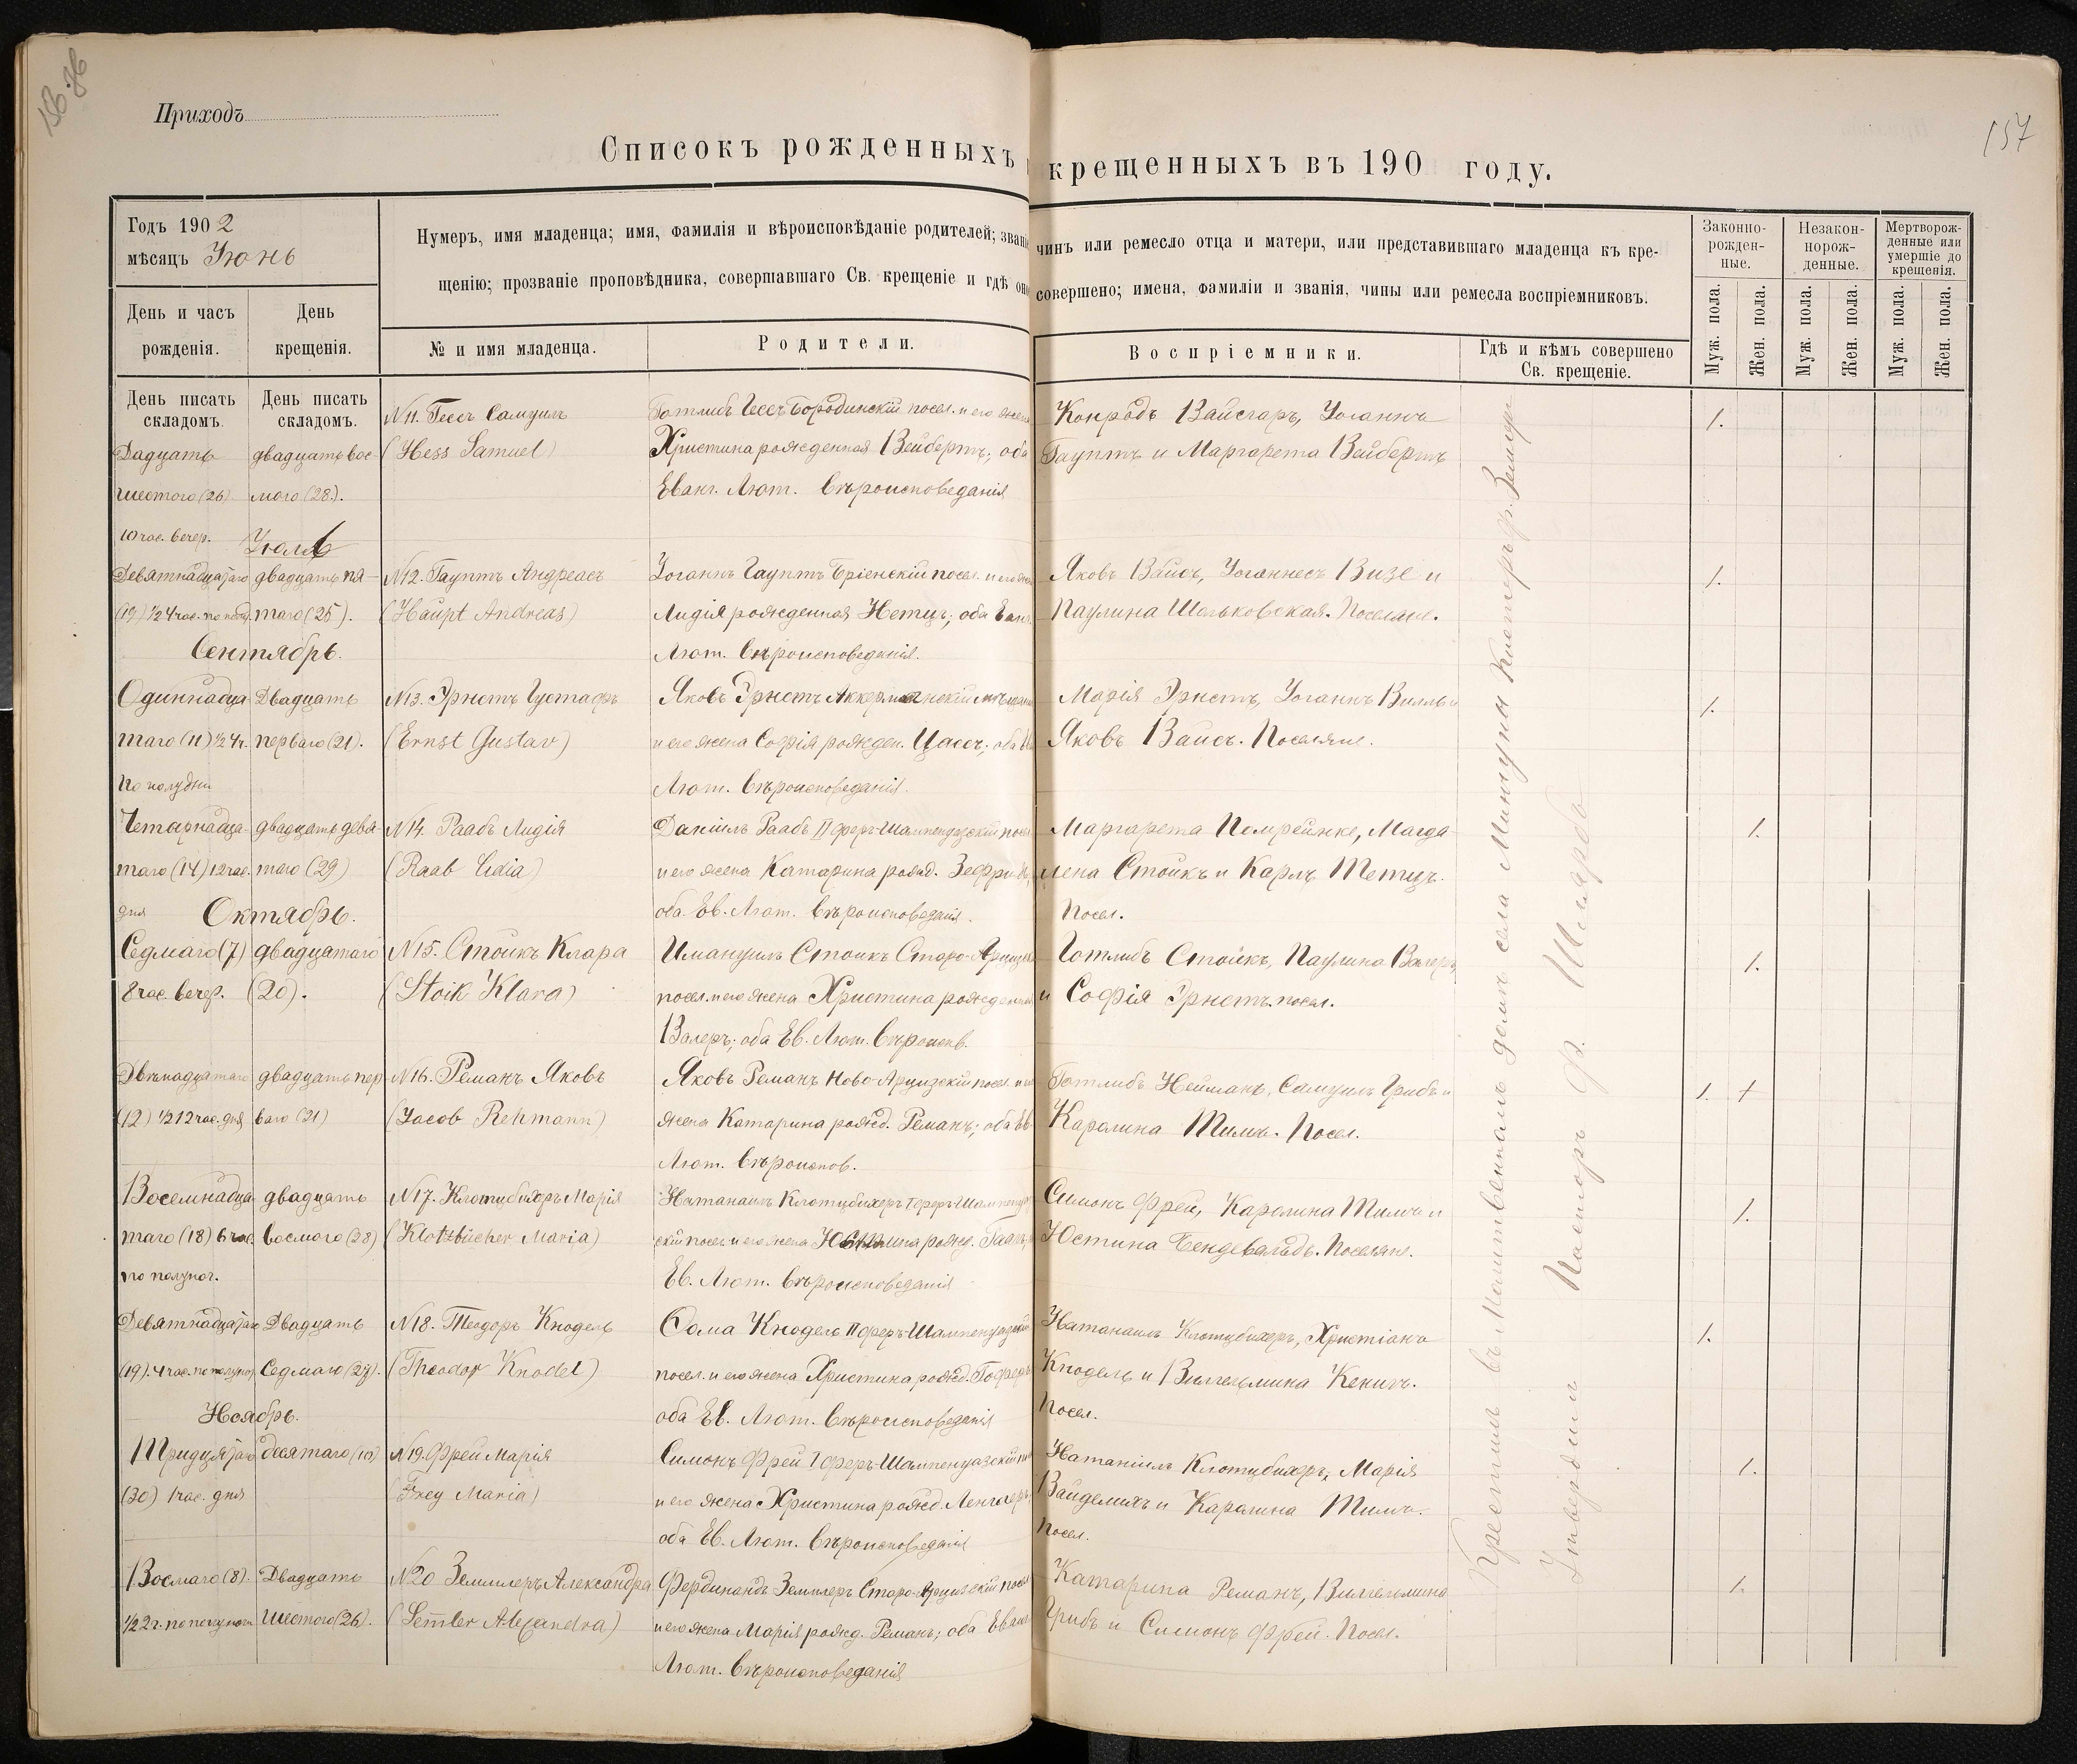 156.об
157
Приходъ
Списокъ рожденныхъ крещенныхъ въ 190 году.
Годъ 1902
мѣсяцъ Іюнь
Нумеръ, имя младенца; имя, фамилія и вѣроисповѣданіе родителей; званіе чинъ или ремесло отца и матери, или представившаго младенца къ кре-
щенію; прозваніе проповѣдника, совершавшаго Св. крещеніе и гдѣ оно совершено; имена, фамиліи и званія, чины или ремесла воспріемниковъ.
Законно-
рожден-
ные.
Незакон-
норож-
денные.
Мертворож-
денные или
умершіе до
крещенія.
День и часъ
рожденія.
День
крещенія.
№ и имя младенца.
Родители.
Воспріемники.
Гдѣ и кѣмъ совершено
Св. крещеніе.
Муж. пола.
Жен. пола.
Муж. пола.
Жен. пола.
Муж. пола.
Жен. пола.
День писать
складомъ.
День писать
складомъ.
Дадцать
шестого (26)
10 час. вечер.
двадцать вос-
мого (28).
N11. Гессъ Самуилъ
(Hess Samuel)
Готлибъ Гессъ Бородинскій посел. и его жена
Христина рожденная Вейбертъ; оба
Еванг. Лют. вѣроисповеданія
Конрадъ Вайсгаръ, Іоганнъ
Гауптъ и Маргарета Вейбертъ
1.
Іюль
Девятнадцатаго
(19) 1/2 4 час. по полу.
двадцать пя-
таго (25).
N12. Гауптъ Андреасъ
(Haupt Andreas)
Іоганнъ Гауптъ Бріенскій посел. и его жена
Лидія рожденная Нетцъ; оба Еванг.
Лют. вѣроисповеданія.
Яковъ Вайсъ, Іоганнесъ Визе и
Паулина Шольковская. Поселяне.
1.
Сентябрь.
Одиннадца-
таго (11) 1/2 4 ч.
по полудни
Двадцать
перваго (21).
N13. Эрнстъ Густафъ
(Ernst Gustav)
Яковъ Эрнстъ Аккерманскій мѣщанинъ
и его жена Софія рожден. Цассъ; оба Ев.
Лют. вѣроисповеданія.
Марія Эрнстъ, Іоганнъ Вилль и
Яковъ Вайсъ. Поселяне.
1.
Четарнадца-
таго (14) 12 час.
дня
двадцать девя-
таго (29)
N14. Раабъ Лидія
(Raab Lidia)
Даніилъ Раабъ II Феръ-Шампенуазскій посел.
и его жена Катарина рожд.
оба Ев. Лют. вѣроисповеданія.
Маргарета Помрейнке, Магда-
лена Стойкъ и Карлъ Тетцъ.
Посел.
1.
Октябрь.
Седмаго (7)
8 час. вечер.
двадцатаго
(20).
N15. Стойкъ Клара
(Stoik Klara)
Имануилъ Стоикъ Старо-Арцизскій
посел. и его жена Христина рожденная
Валеръ; оба Ев. Лют. вѣроиспов.
Готлибъ Стойкъ, Паулина Валеръ
и Софія Эрнстъ. посел.
1.
Двѣнадцатаго
(12) 1/2 12 час. дня
двадцать пер-
ваго (21)
N16. Реманъ Яковъ
(Jacob Rehmann)
Яковъ Реманъ Ново-Арцизскій посел. и его
жена Катарина рожд. Реманъ; оба Ев.
Лют. вѣроиспов.
Готлибъ Нейманъ, Самуилъ Грибъ и
Каролина Тимъ. Посел.
1. †
Восемнадца-
таго (18) 6 час.
по полуноч.
двадцать
восмого (28)
N17. Клотцбихеръ Марія
(Klotzbücher Maria)
Натанаилъ Клотцбихеръ I Феръ-Шампенуаз-
скій посел. и его жена Юстина рожд.
Ев. Лют. вѣроисповеданія
Симонъ Фрей, Каролина Тимъ и
Юстина Бендевальдъ. Поселяне.
1.
Девятнадцатаго
(19). 4 час. по полуноч.
Двадцать
Седмаго (27).
N18. Теодоръ Кнодель
(Theodor Knodel)
Сома Кнодель II Феръ-Шампенуазскій
посел. и его жена Христина рожд. Гоферъ
оба Ев. Лют. вѣроисповеданія
Натанаилъ Клотцбихеръ, Христіана
Кнодель и Вилгельмина Кенигъ.
Посел.
1.
Ноябрь.
Тридцятаго
(30) 1 час. дня
десятаго (10)
N19. Фрей Марія
(Frey Maria)
Симонъ Фрей I Феръ-Шампенуазскій пос.
и его жена Христина рожд.
оба Ев. Лют. вѣроисповеданія
Натаніилъ Клотцбихеръ, Марія
Вайделихъ и Каролина Тимъ.
Посел.
1.
Восмаго (8).
1/2 2 ч. по полуноч.
Двадцать
Шестого (26).
N20 Земмлеръ Александра
(Semler Alexandra)
Фердинандъ Земмлеръ Старо-Арцизскій посел.
и его жена Марія рожд. Реманъ; оба Еванг.
Лют. вѣроисповеданія
Катарина Реманъ, Вилгельмина
Грибъ и Симонъ Фрей. Посел.
1.
Крестилъ въ молитвенномъ домѣ села Минтуны Кистеръ Ф. Земмлеръ
Утвердилъ Пасторъ Ф.